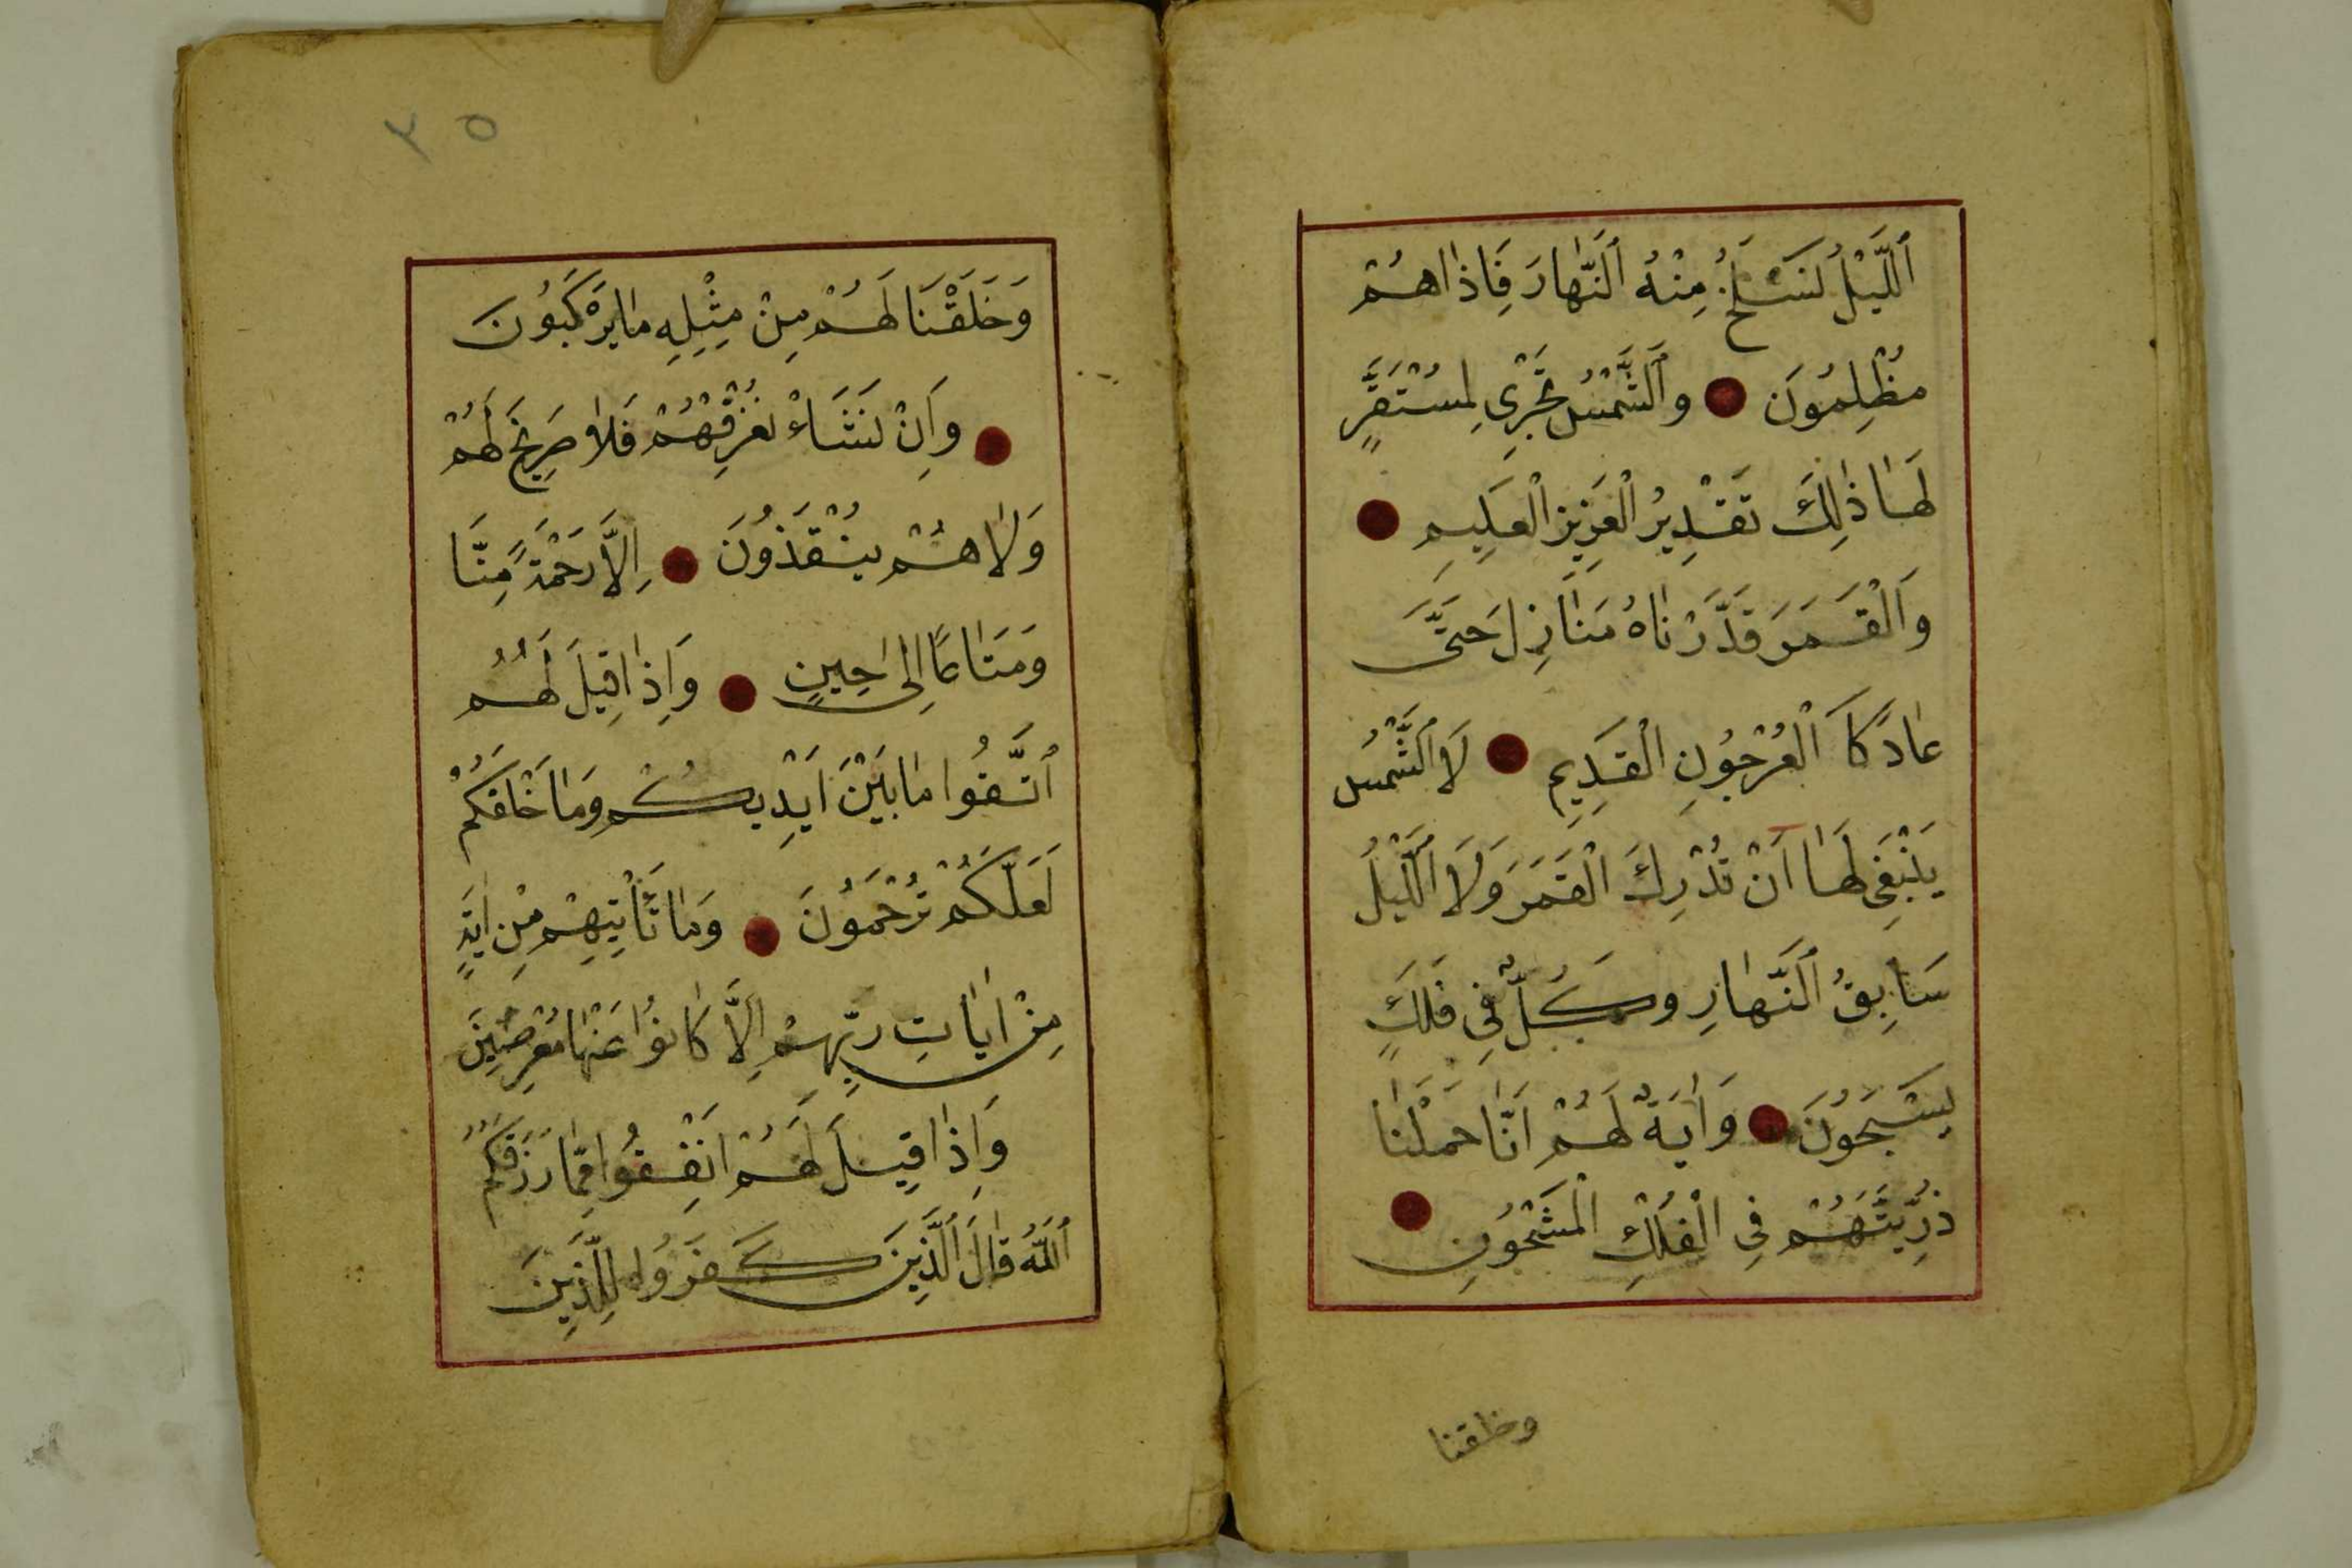 اَللَّيْلُ نَسْلَخُ مِنْهُ اَلنَّهٰارَ فَاِذٰا هُمْ
مُظْلِمُونَ ● وَاَلشَّمْسُ تَجْرِي لِمُسْتَقَرٍّ
لَهٰا ذٰلِكَ تَقْدِيرُ الْعَزِيزِ الْعَلِيمِ ●
وَالْقَمَرَ قَدَّرْنٰاهُ مَنٰازِلَ حَتّٰى
عٰادَ كَا الْعُرْجُونِ الْقَدِيمِ ● لَا اَلشَّمْسُ
يَنْبَغِي لَهٰا اَنْ تُدْرِكَ الْقَمَرَ وَلَا اَللَّيْلُ
سَابِقُ اَلنَّهٰارِ وَكُلٌّ فِي فَلَكٍ
يَسْبَحُونَ ● وَاٰيَةٌ لَهُمْ اَنّٰا حَمَلْنٰا
ذُرِّيَّتَهُمْ فِي الْفُلْكِ الْمَشْحُونِ ●
وخلقنا
٣٥
وَخَلَقْنَا لَهُمْ مِنْ مِثْلِهِ مٰا يَرْكَبُونَ
● وَاِنْ نَشَاءْ نُغْرِقْهُمْ فَلاٰ صَرِيخَ لَهُمْ
وَلاٰ هُمْ يُنْقَذُونَ ● اِلاَّ رَحْمَةً مِنَّا
وَمَتٰاعًا اِلٰى حِينٍ ● وَاِذٰا قِيلَ لَهُمُ
اَتَّقُوا مٰا بَيْنَ اَيْدِيكُمْ وَمٰا خَلْفَكُمْ
لَعَلَّكُمْ تُرْحَمُونَ ● وَمٰا تَأْتِيهِمْ مِنْ اٰيَةٍ
مِنْ اٰيٰاتِ رَبِّهِمْ اِلاَّ كٰانُوا عَنْهٰا مُعْرِضِينَ
وَاِذٰا قِيلَ لَهُمْ اَنْفِقُوا مِمّٰا رَزَقَكُمُ
اَللّٰهُ قٰالَ اَلَّذِينَ كَفَرُوا لِلَّذِينَ